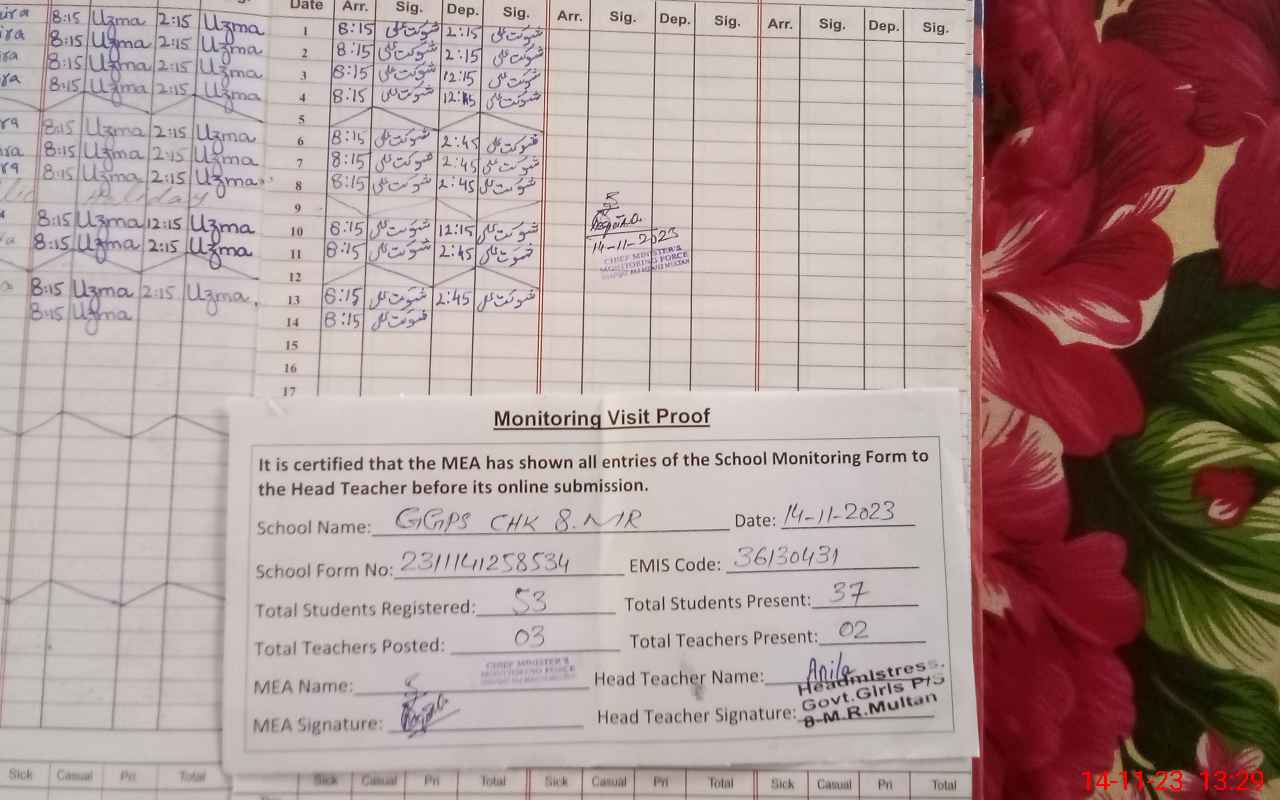 Date Arr. Sig. Dep. Sig. Arr. Sig. Dep. Sig. Arr. Sig. Dep. Sig.
8:15 Uzma 2:15 Uzma 1 8:15 شوکت علی 2:15 شوکت علی
8:15 Uzma 2:15 Uzma 2 8:15 شوکت علی 2:15 شوکت علی
8:15 Uzma 2:15 Uzma 3 8:15 شوکت علی 12:15 شوکت علی
8:15 Uzma 2:15 Uzma 4 8:15 شوکت علی 12:15 شوکت علی
5
8:15 Uzma 2:15 Uzma 6 8:15 شوکت علی 2:45 شوکت علی
8:15 Uzma 2:15 Uzma 7 8:15 شوکت علی 2:45 شوکت علی
8:15 Uzma 2:15 Uzma 8 8:15 شوکت علی 2:45 شوکت علی
Holiday 9
8:15 Uzma 12:15 Uzma 10 8:15 شوکت علی 12:15 شوکت علی
8:15 Uzma 2:15 Uzma 11 8:15 شوکت علی 2:45 شوکت علی
14-11-2023
CHIEF MINISTER'S
MONITORING FORCE
12
8:15 Uzma 2:15 Uzma 13 8:15 شوکت علی 2:45 شوکت علی
8:15 Uzma 14 8:15 شوکت علی
15
16
17
Monitoring Visit Proof
It is certified that the MEA has shown all entries of the School Monitoring Form to
the Head Teacher before its online submission.
School Name: GGPS CHK 8.MR Date: 14-11-2023
School Form No: 23111141258534 EMIS Code: 36130431
Total Students Registered: 53 Total Students Present: 37
Total Teachers Posted: 03 Total Teachers Present: 02
CHIEF MINISTER'S
MONITORING FORCE
MEA Name: Head Teacher Name: Anila
MEA Signature: Head Teacher Signature:
Headmistress.
Govt.Girls P/S
8-M.R.Multan
Sick Casual Pri Total Sick Casual Pri Total Sick Casual Pri Total Sick Casual Pri Total
14-11-23 13:29